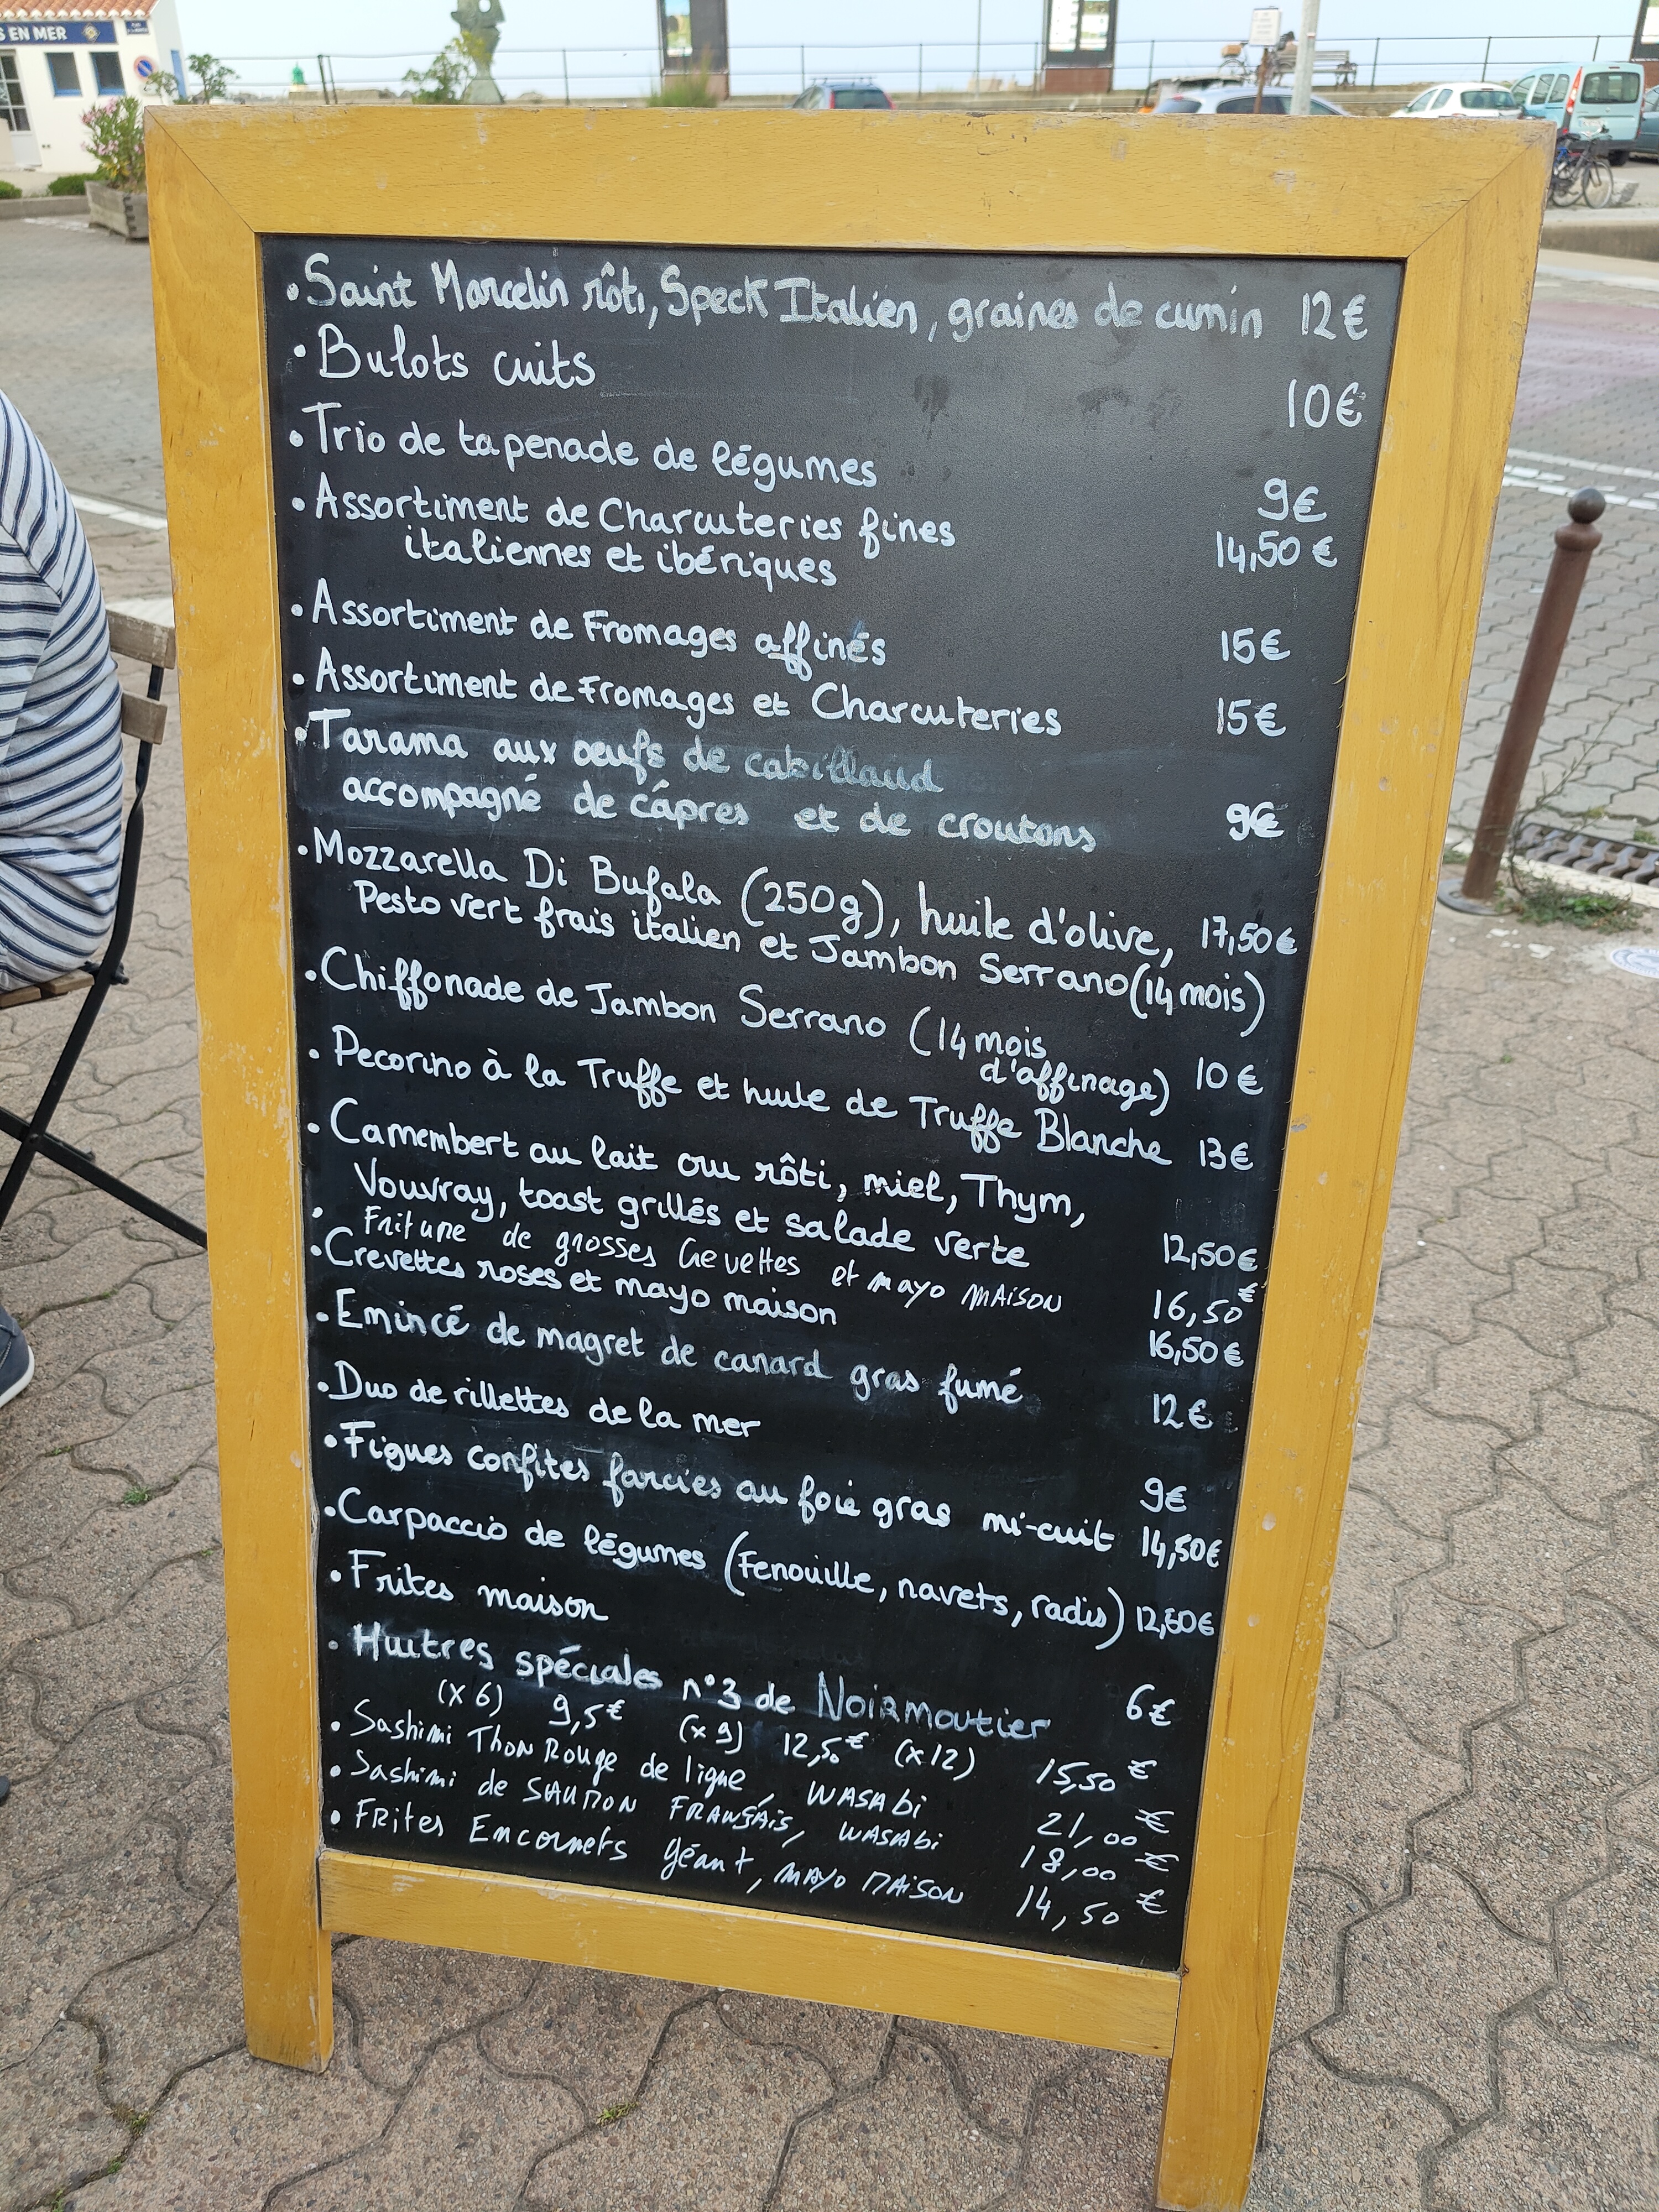 S EN MER
• Saint Marcelin rôti, Speck Italien, graines de cumin 12€
• Bulots cuits 10€
• Trio de tapenade de légumes 9€
• Assortiment de Charcuteries fines 14,50€
italiennes et ibériques
• Assortiment de Fromages affinés 15€
• Assortiment de Fromages et Charcuteries 15€
• Tarama aux oeufs de cabillaud
accompagné de câpres et de croutons 9€
• Mozzarella Di Bufala (250g), huile d'olive, 17,50€
Pesto vert frais italien et Jambon Serrano (14 mois)
• Chiffonade de Jambon Serrano (14 mois
d'affinage) 10€
• Pecorino à la Truffe et huile de Truffe Blanche 13€
• Camembert au lait cru rôti, miel, Thym,
Vouvray, toast grillés et salade verte 12,50€
• Friture de grosses Crevettes et mayo MAISON 16,50€
• Crevettes roses et mayo maison 16,50€
• Emincé de magret de canard gras fumé 12€
• Duo de rillettes de la mer 9€
• Figues confites farcies au foie gras mi-cuit 14,50€
• Carpaccio de légumes (Fenouille, navets, radis) 12,50€
• Frites maison 6€
• Huitres spéciales n°3 de Noirmoutier
(x6) 9,5€ (x9) 12,5€ (x12) 15,50€
• Sashimi Thon Rouge de ligne, WASAbi 21,00€
• Sashimi de SAUMON FRANÇAis, WASAbi 18,00€
• FRites Encornets géant, MAYO MAiSON 14,50€